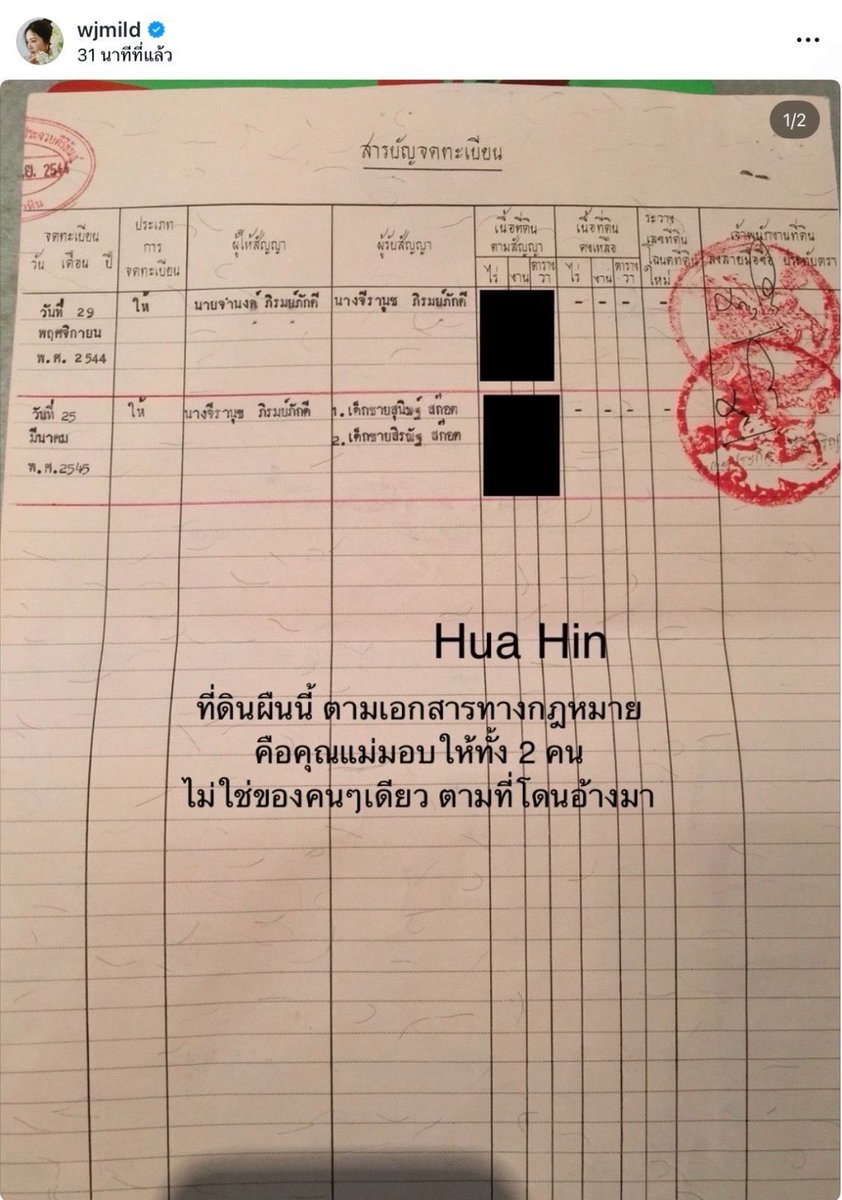 wjmild
31 นาทีที่แล้ว
1/2
ประจวบคีรีขันธ์
ย. 2544
สารบัญจดทะเบียน
จดทะเบียน
วัน เดือน ปี
ประเภท
การ
จดทะเบียน
ผู้ให้สัญญา
ผู้รับสัญญา
เนื้อที่ดิน
ตามสัญญา
ไร่ งาน ตาราง
วา
เนื้อที่ดิน
คงเหลือ
ไร่ งาน ตาราง
วา
ระวาง
เลขที่ดิน
โฉนดที่ดิน
ใหม่
เจ้าพนักงานที่ดิน
ลงลายมือชื่อ ประทับตรา
วันที่ 29
พฤศจิกายน
พ.ศ. 2544
ให้
นายจำนงค์ ภิรมย์ภักดี
นางจีรานุช ภิรมย์ภักดี
- - - -
วันที่ 25
มีนาคม
พ.ศ.2545
ให้
นางจีรานุช ภิรมย์ภักดี
1. เด็กชายสุนิษฐ์ สก๊อต
2. เด็กชายสิรณัฐ สก๊อต
- - - -
Hua Hin
ที่ดินผืนนี้ ตามเอกสารทางกฎหมาย
คือคุณแม่มอบให้ทั้ง 2 คน
ไม่ใช่ของคนๆเดียว ตามที่โดนอ้างมา